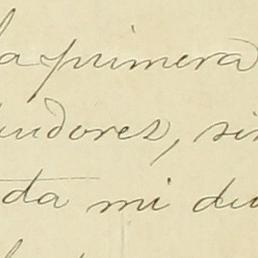 la primera
udores, sin
da mi du